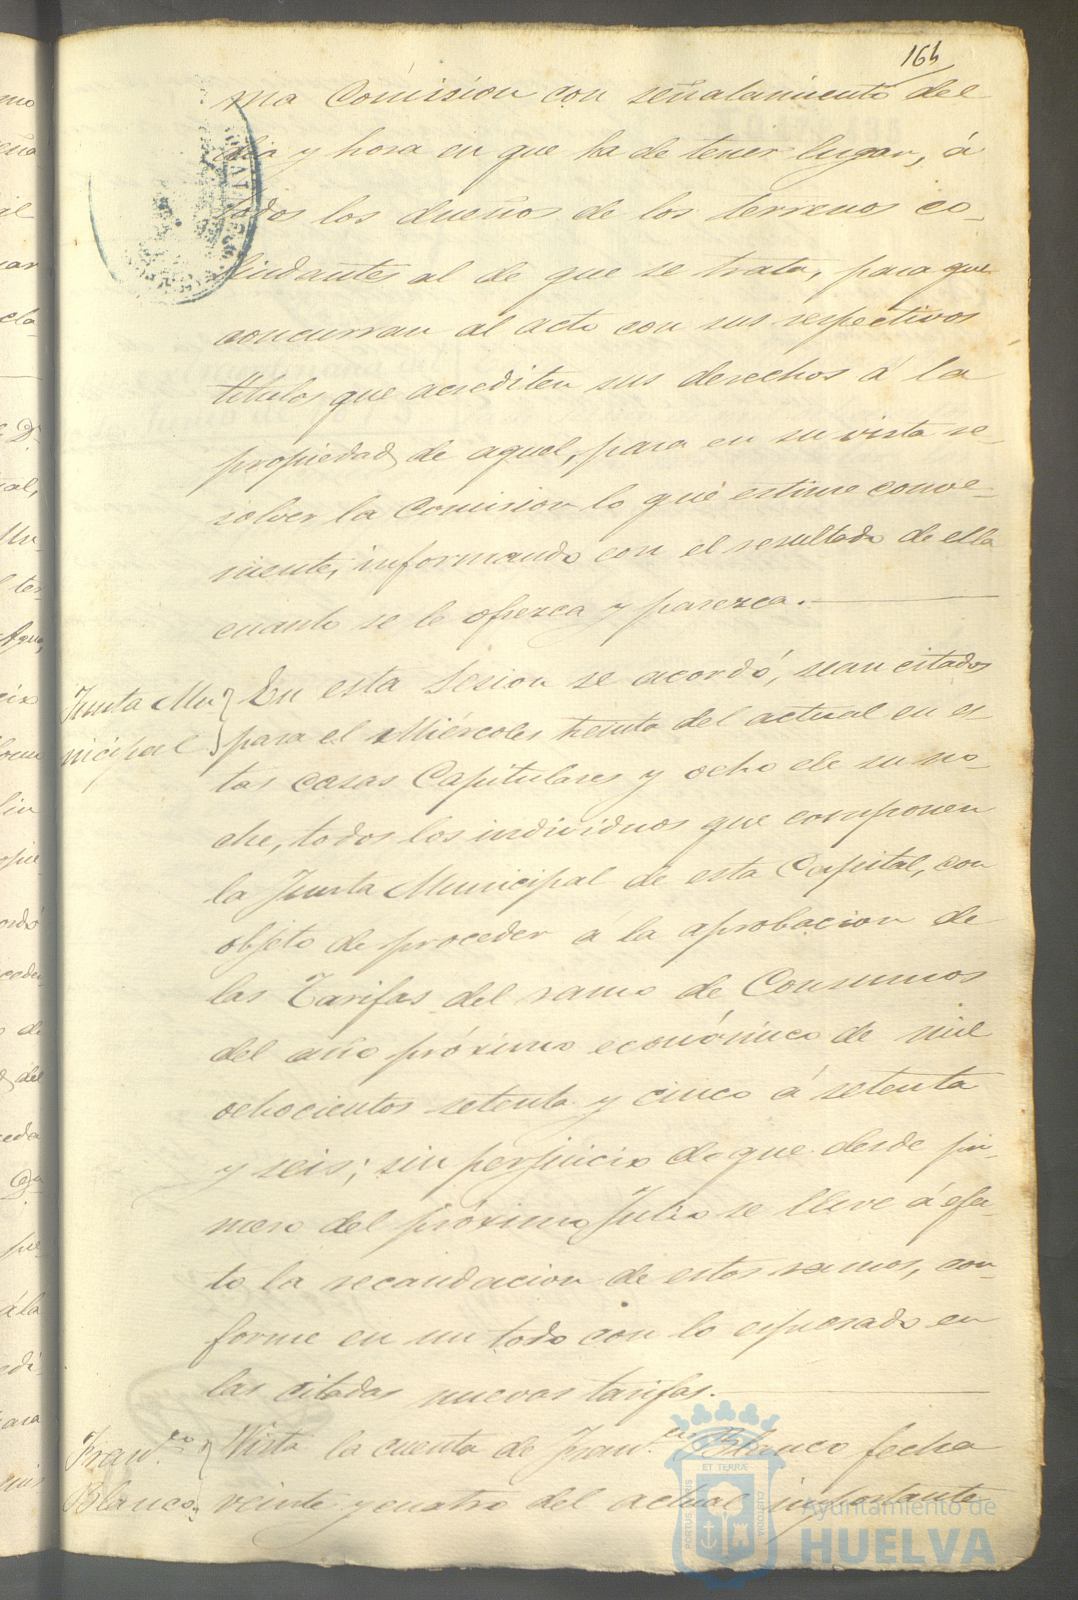 164
ma Comision con señalamiento del
dia y hora en que ha de tener lugar, á
todos los dueños de los terrenos co-
lindantes al de que se trata, para que
concurran al acto con sus respectivos
titulos que acrediten sus derechos á la
propiedad de aquel, para en su vista re-
solver la Comision lo que estime conve-
niente, informando con el resultado de ella
cuanto se le ofrezca y parezca.
Junta Mu
nicipal
En esta Sesion se acordó, sean citados
para el Miércoles treinta del actual en es
tas casas Capitulares y ocho de su no-
che, todos los individuos que componen
la Junta Municipal de esta Capital, con
objeto de proceder á la aprobacion de
las Tarifas del ramo de Consumos
del año próximo económico de mil
ochocientos setenta y cinco á setenta
y seis; sin perjuicio de que desde pri-
mero del próximo Julio se lleve á efec-
to la recaudacion de estos ramos, con-
forme en un todo con lo espresado en
las citadas nuevas tarifas.
Fran.co
Blanco
Vista la cuenta de Fran.co Blanco fecha
veinte y cuatro del actual importante
PORTUS MARIS
ET TERRÆ
CUSTODIA
Ayuntamiento de
HUELVA